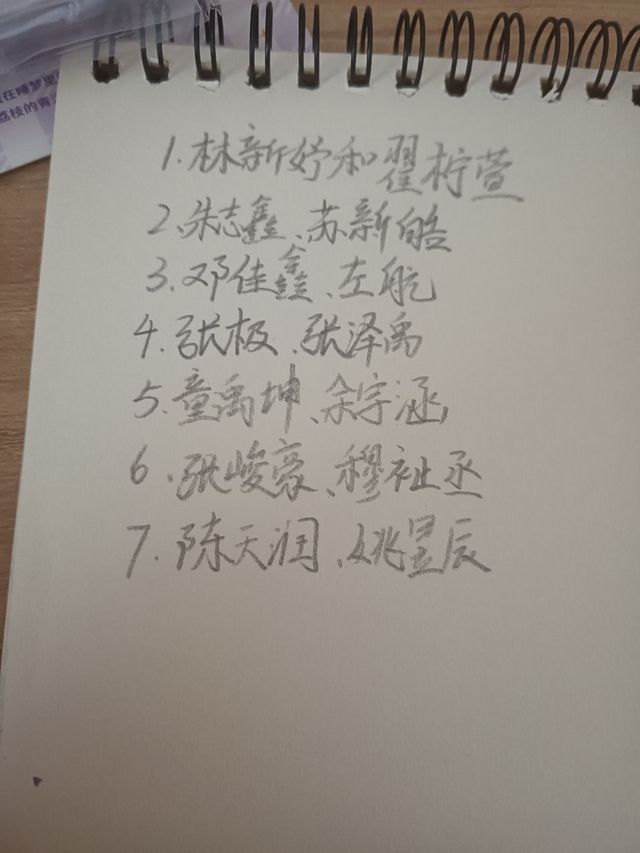 在睡梦里
荔枝的青
1.林新妤和翟柠萱
2.朱志鑫、苏新皓
3.邓佳鑫、左航
4.张极、张泽禹
5.童禹坤、余宇涵
6.张峻豪、穆祉丞
7.陈天润、姚昱辰